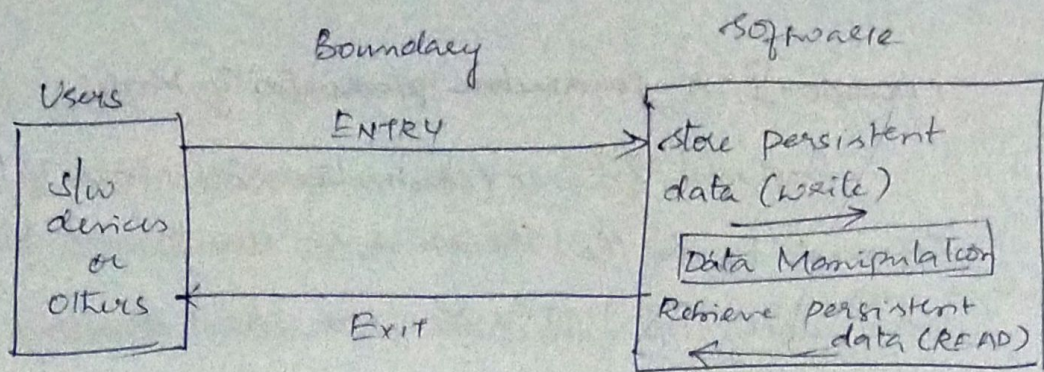 Boundary
Software
Users
ENTRY
S/w
devices
or
others
Store persistent
data (write)
Data Manipulation
Retrieve persistent
data (READ)
Exit